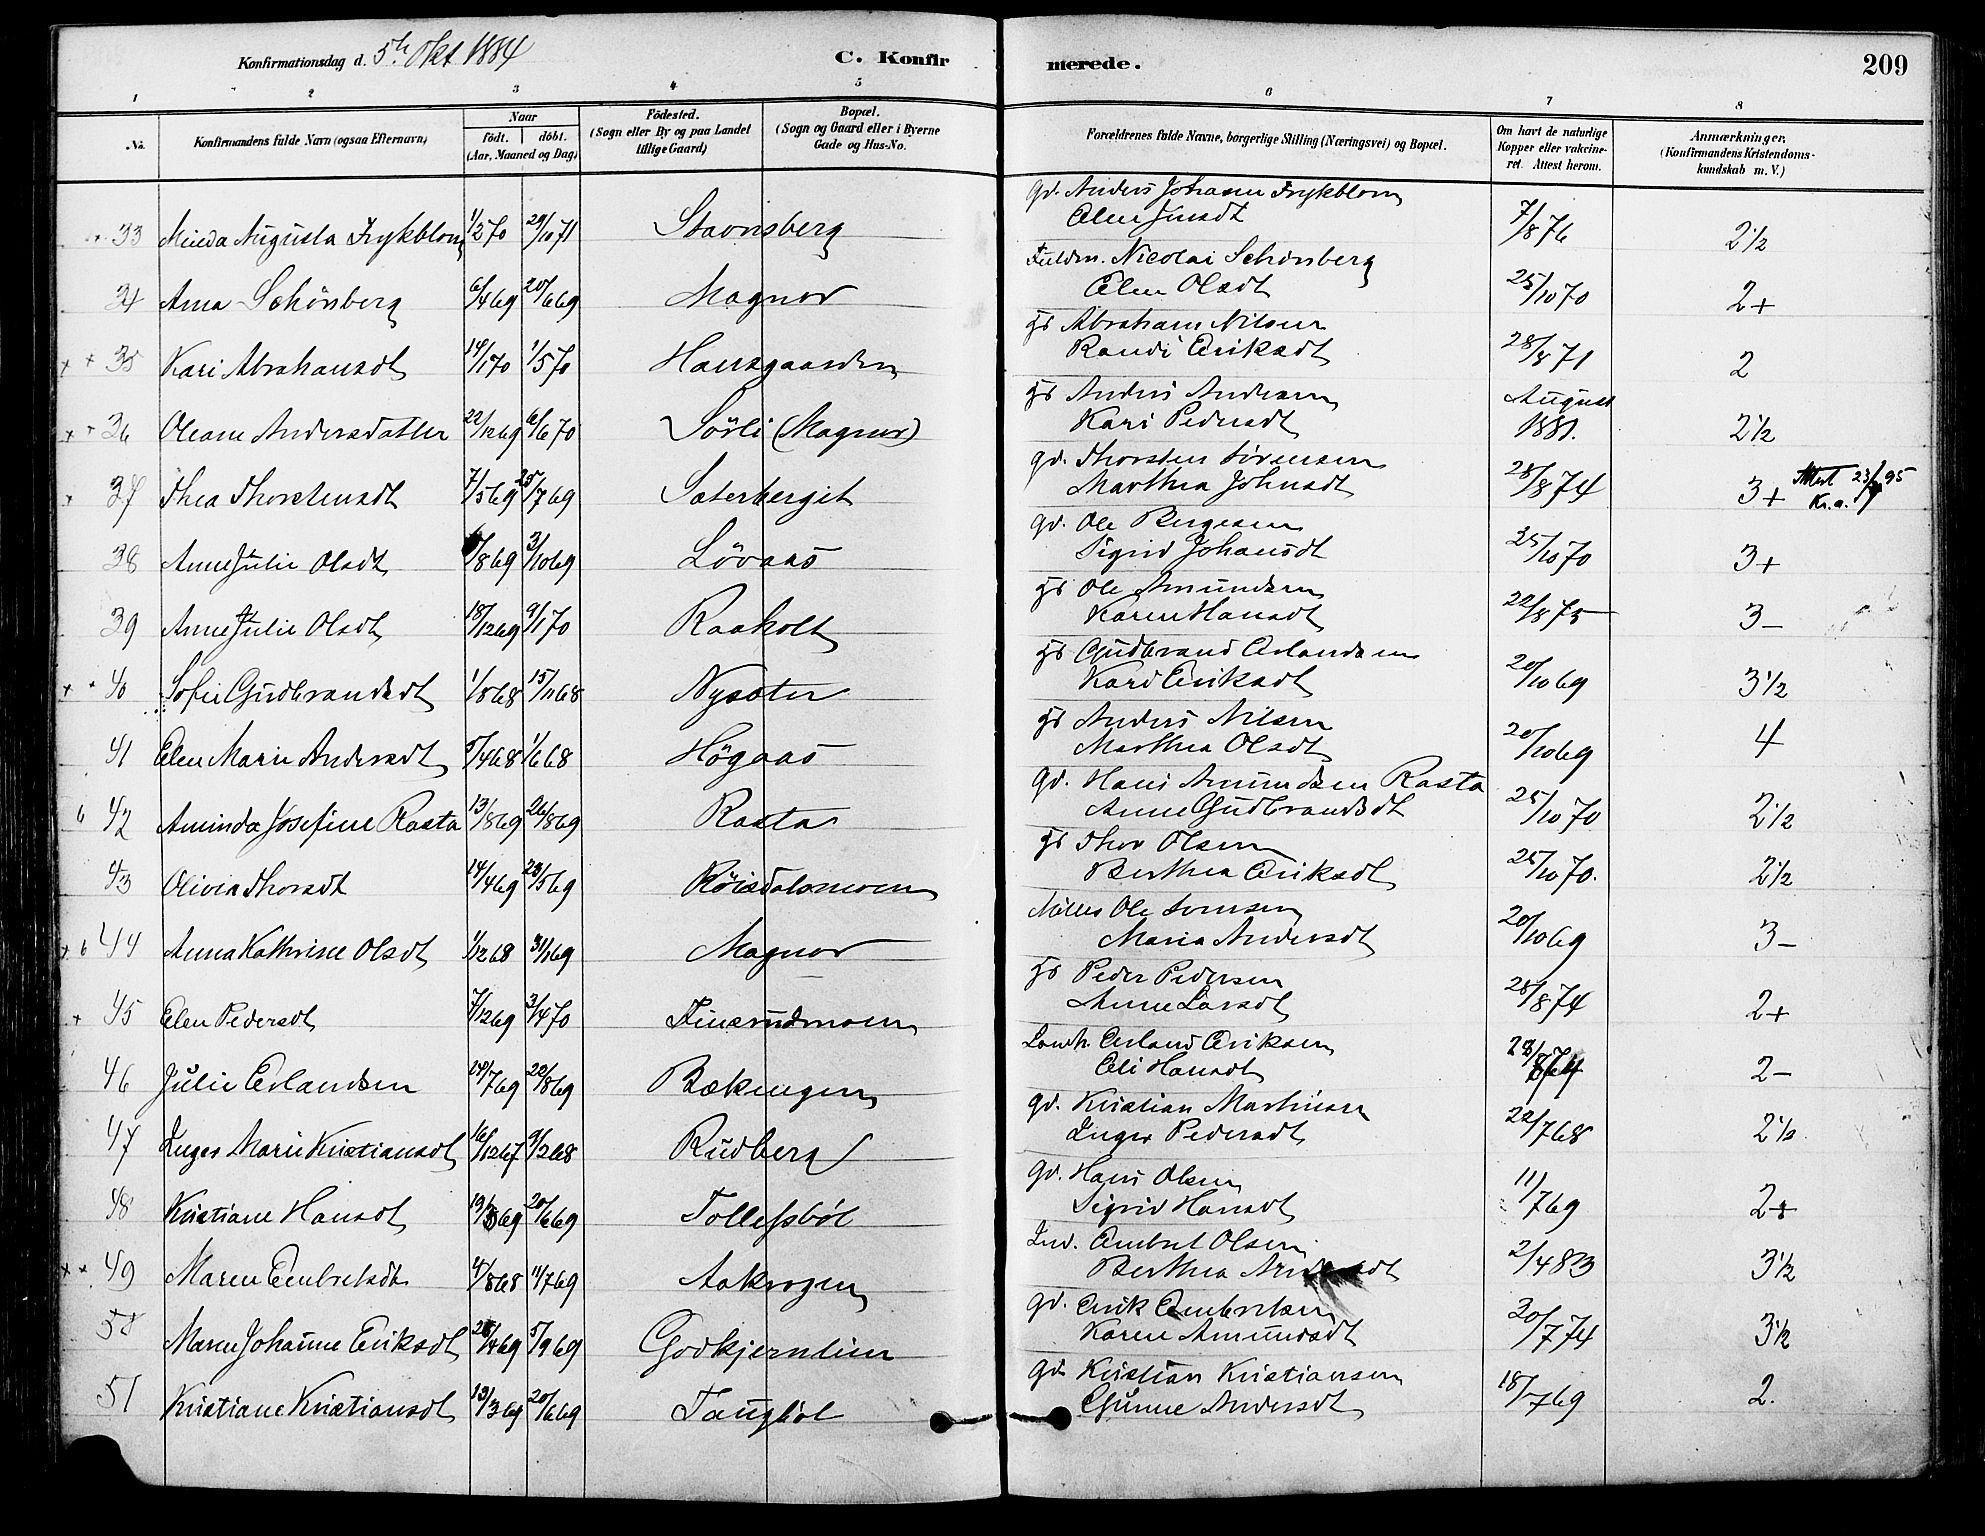 Konfirmationsdag d. 5te Okt 1884
C. Konfirmerede.
209
1 2 3 4 5 6 7 8
No.
Konfirmandens fulde Navn (ogsaa Efternavn)
Naar
født. døbt.
(Aar, Maaned og Dag)
Födested.
(Sogn eller By og paa Landet
tillige Gaard)
Bopæl.
(Sogn og Gaard eller i Byerne
Gade og Hus-No.
Forældrenes fulde Navne, borgerlige Stilling (Næringsvei) og Bopæl.
Om havt de naturlige
Kopper eller vakcine-
ret. Attest herom.
Anmærkninger,
(Konfirmandens Kristendoms-
kundskab m. V.)
33 Minda Augusta Frykblom 1/2 70 29/10 71 Stavnsberg Gd. Anders Johanen Frykblom
Elen Jensdt 7/8 76 2 1/2
34 Anna Schönsberg 6/4 69 20/6 69 Magnor Fuldm. Nicolai Schönsberg
Elen Olsdt 25/10 70 2+
x + 35 Kari Abrahamsdt 14/1 70 1/5 70 Hansgaarden Hs Abraham Nilsen
Randi Eriksdt 28/8 71 2
x + 36 Oleane Andersdatter 22/12 69 6/6 70 Sörli (Magnor) Hs Anders Andersen
Kari Pedersdt August
1881. 2 1/2
37 Thea Thorstensdt 7/5 69 25/7 69 Sæterberget Gd. Thorsten Sörensen
Marthea Johnsdt 28/8 74 3+ Attest 23/9 95
Kr.a.
38 Anne Julie Olsdt /8 69 3/10 69 Lövaas Gd. Ole Bergesen
Sigrid Johansdt 25/10 70 3+
39 Anne Julie Olsdt 18/12 69 9/1 70 Raaholt Hs Ole Amundsen
Karen Hansdt 22/8 75 3-
x + 40 Sofie Gudbrandsdt 1/8 68 15/11 68 Nysæter Hs Gudbrand Erlandsen
Kari Eriksdt 20/10 69 3 1/2
41 Elen Marie Andersdt 5/4 68 1/6 68 Högaas Hs Anders Nilsen
Marthea Olsdt 20/10 69 4
6 42 Aminda Josefine Rasta 13/8 69 26/8 69 Rasta Gd. Hans Amundsen Rasta
Anne Gudbrandsdt 25/10 70 2 1/2
43 Olivia Thorsdt 14/4 69 23/5 69 Röisdalsmoen Hs Thor Olsen
Berthea Eriksdt 25/10 70. 2 1/2
x 6 44 Anna Kathrine Olsdt 1/12 68 31/1 69 Magnor Möller Ole
Maria Andersdt 20/10 69 3-
+ 45 Elen Pedersdt 7/12 69 3/4 70 Finsrudmoen Hs Peder Pedersen
Anne Larsdt 28/8 74 2+
46 Julie Erlandsen 24/7 69 22/8 69 Bækengen Landh. Erland Eriksen
Eli Hansdt 28/8 74 2-
47 Inger Marie Kristiansdt 16/12 67 9/2 68 Rudberg Gd. Kristian Martinsen
Inger Pedersdt 22/7 68 2 1/2
48 Kristiane Hansdt 19/3 69 20/6 69 Tollefsböl Gd. Hans Olsen
Sigrid Hansdt 11/7 69 2+
x x 49 Maren Embretsdt 4/8 68 11/7 69 Aakrogen Ind. Embret Olsen
Berthea 2/4 83 3 1/2
50 Maren Johanne Eriksdt 28/4 69 5/9 69 Godkjernlien Gd. Erik Embretsen
Karen Amundsdt 20/7 74 3 1/2
51 Kristiane Kristiansdt 13/3 69 20/6 69 Taugböl Gd. Kristian Kristiansen
Gunne Andersdt 18/7 69 2.